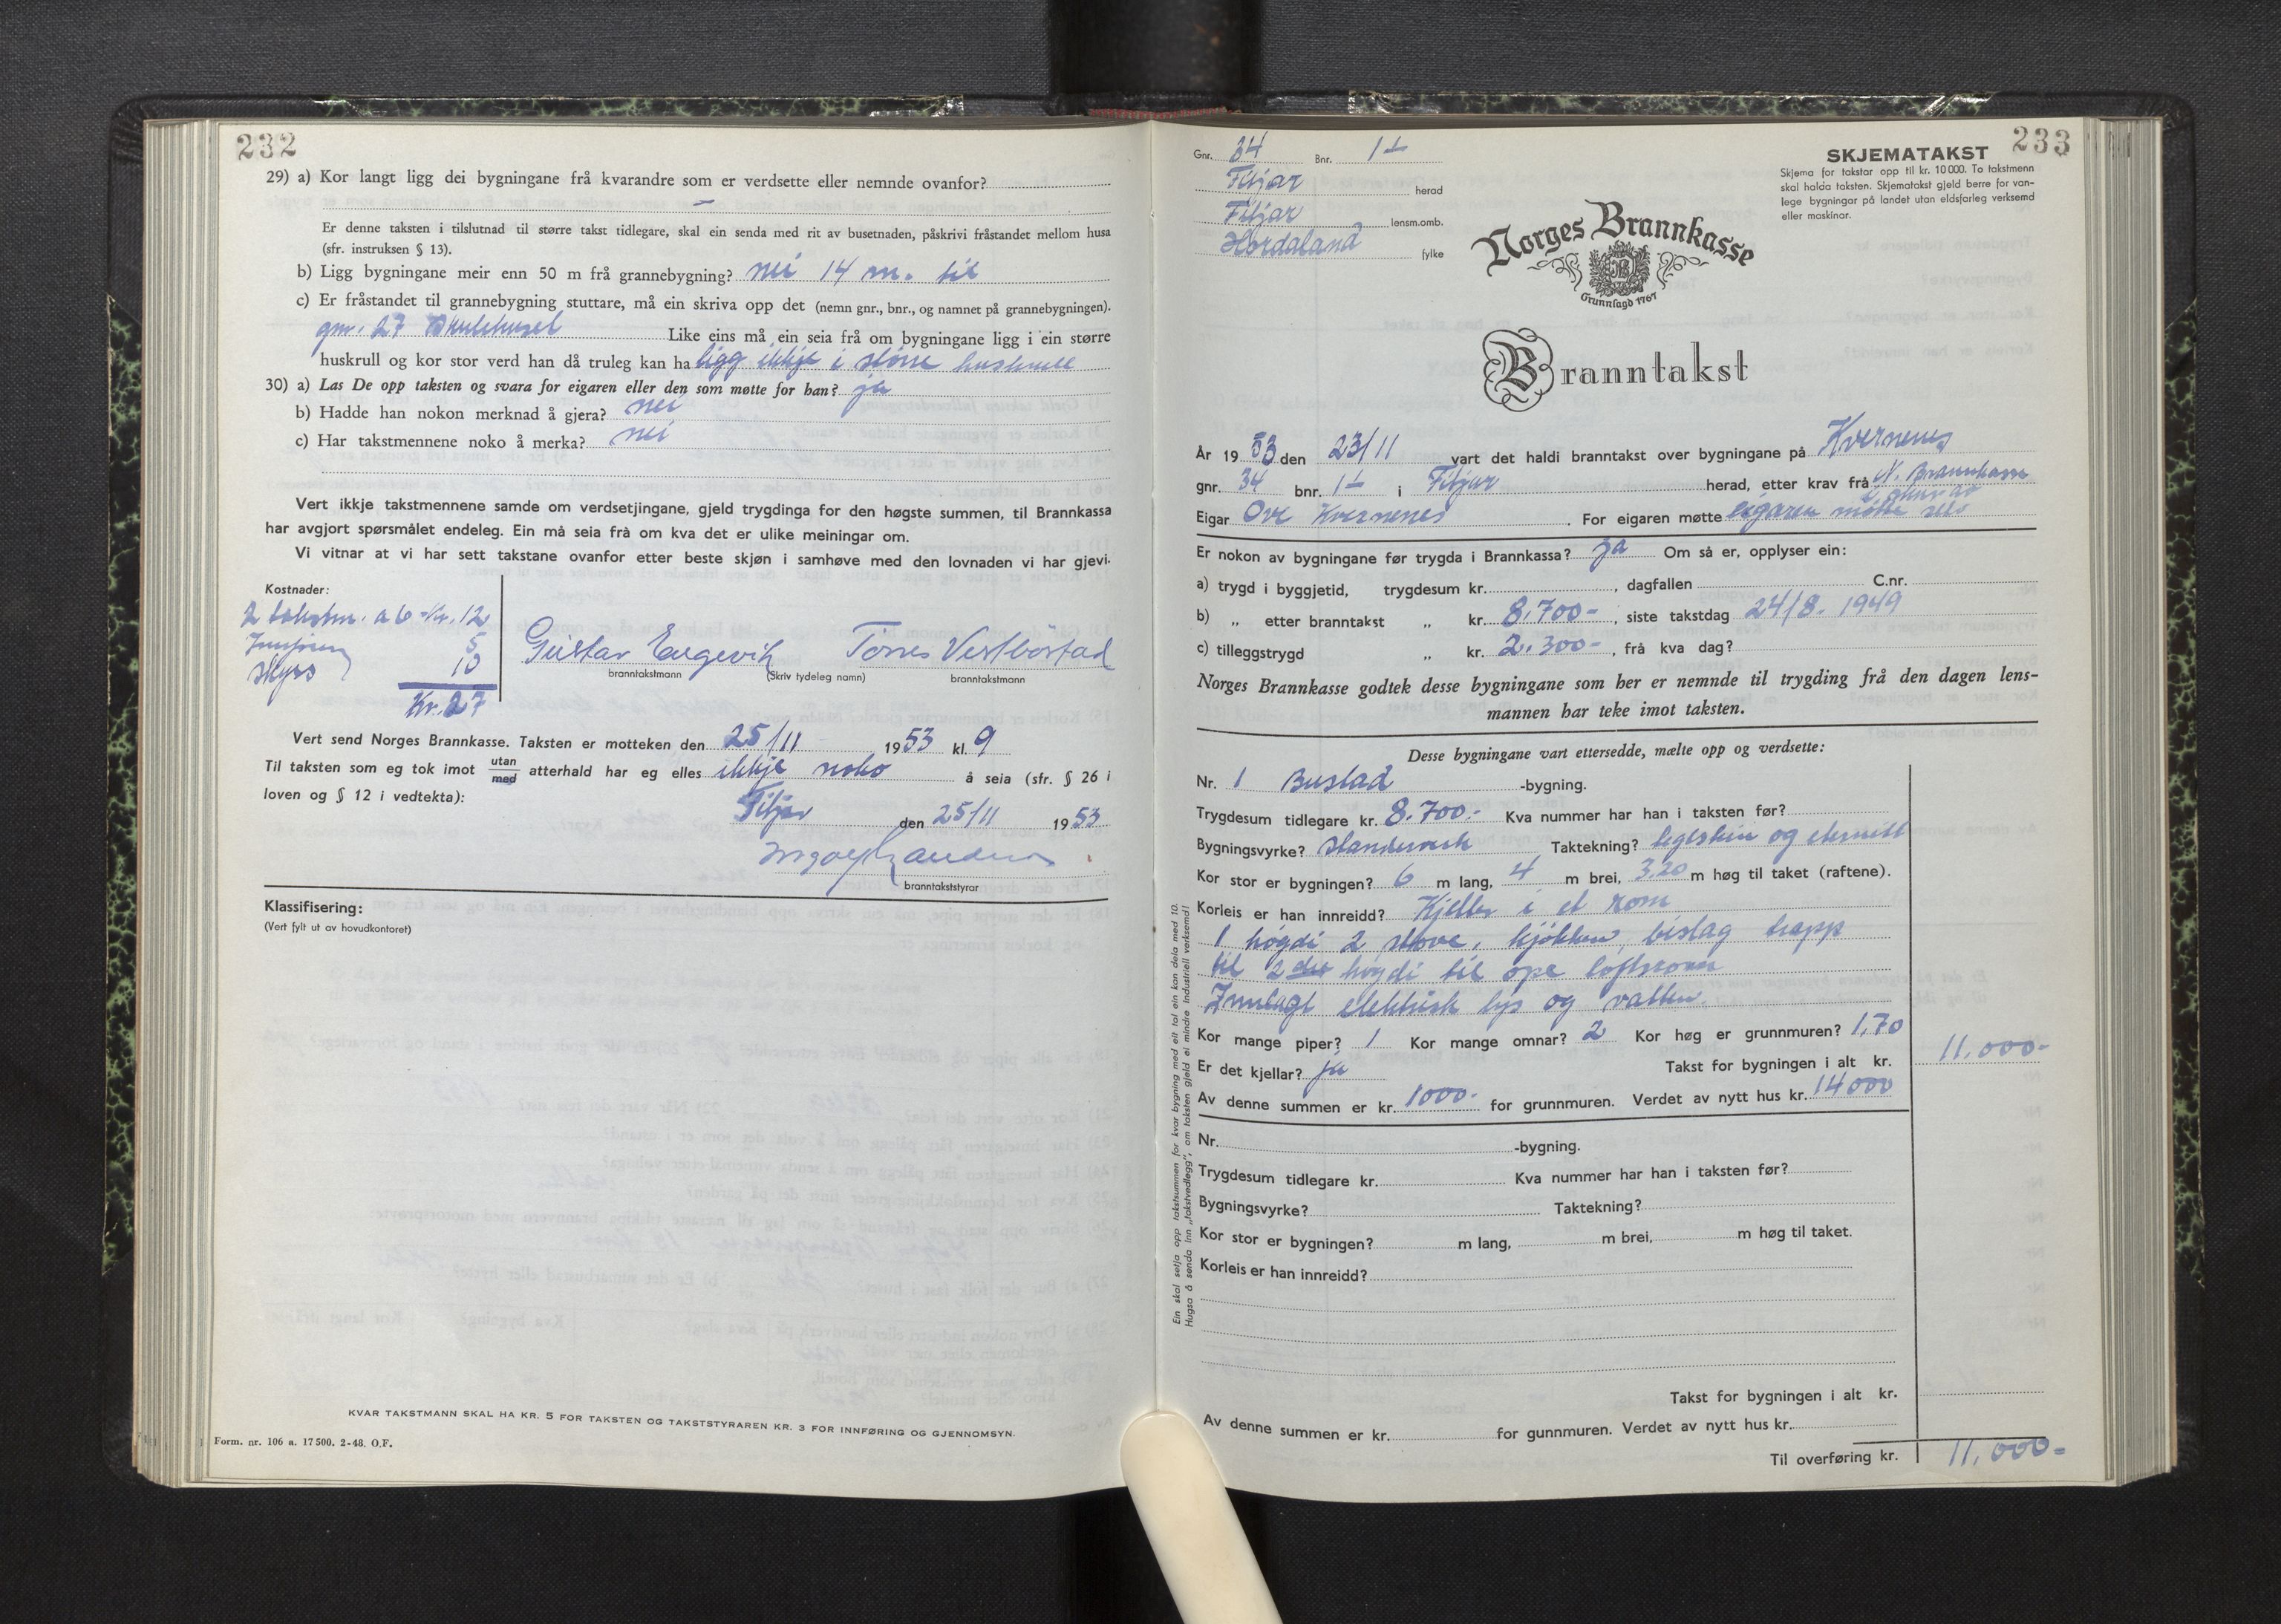 232
29) a) Kor langt ligg dei bygningane frå kvarandre som er verdsette eller nemnde ovanfor?
—
Er denne taksten i tilslutnad til større takst tidlegare, skal ein senda med rit av busetnaden, påskrivi fråstandet mellom husa
(sfr. instruksen § 13).
b) Ligg bygningane meir enn 50 m frå grannebygning? nei 14 m. til
c) Er fråstandet til grannebygning stuttare, må ein skriva opp det (nemn gnr., bnr., og namnet på grannebygningen).
gnr. 27 Skulehuset Like eins må ein seia frå om bygningane ligg i ein større
huskrull og kor stor verd han då truleg kan ha ligg ikkje i större huskrull
30) a) Las De opp taksten og svara for eigaren eller den som møtte for han? ja
b) Hadde han nokon merknad å gjera? nei
c) Har takstmennene noko å merka? nei
Vert ikkje takstmennene samde om verdsetjingane, gjeld trygdinga for den høgste summen, til Brannkassa
har avgjort spørsmålet endeleg. Ein må seia frà om kva det er ulike meiningar om.
Vi vitnar at vi har sett takstane ovanfor etter beste skjøn i samhøve med den lovnaden vi har gjevi.
Kostnader:
2 takstm. a 6 - Kr. 12
Innföring 5
Skyss 10
Kr. 27
Gustav Engevik Tönes Vestböstad
branntakstmann (Skriv tydeleg namn) branntakstmann
Vert send Norges Brannkasse. Taksten er motteken den 25/11 1953 kl. 9
Til taksten som eg tok imot utan/med atterhald har eg elles ikkje noko å seia (sfr. § 26 i
loven og § 12 i vedtekta):
Fitjar den 25/11 1953
branntakststyrar
Klassifisering:
(Vert fylt ut av hovudkontoret)
KVAR TAKSTMANN SKAL HA KR. 5 FOR TAKSTEN OG TAKSTSTYRAREN KR. 3 FOR INNFØRING OG GJENNOMSYN.
Form. nr. 106 a. 17500. 2-48. O.F.
233
Gnr. 34 Bnr. 1
Fitjar herad
Fitjar lensm.omb.
Hordaland fylke
SKJEMATAKST
Skjema for takstar opp til kr. 10 000. To takstmenn
skal halda taksten. Skjematakst gjeld berre for van-
lege bygningar på landet utan eldsfarleg verksemd
eller maskinar.
Norges Brannkasse
Grunnlagd 1767
Branntakst
År 1953 den 23/11 vart det haldi branntakst over bygningane på Kvernenes
gnr. 34 bnr. 1 i Fitjar herad, etter krav frå N. Brannkasse
Eigar Ove Kvernenes. For eigaren møtte eigaren møtte selv
Er nokon av bygningane før trygda i Brannkassa? ja Om så er, opplyser ein:
a) trygd i byggjetid, trygdesum kr. , dagfallen C.nr.
b) „ etter branntakst „ kr. 8.700- , siste takstdag 24/8. 1949
c) tilleggstrygd „ kr. 2.300- , frå kva dag?
Norges Brannkasse godtek desse bygningane som her er nemnde til trygding frå den dagen lens-
mannen har teke imot taksten.
Desse bygningane vart ettersedde, mælte opp og verdsette:
Nr. 1 Bustad -bygning.
Trygdesum tidlegare kr. 8.700.- Kva nummer har han i taksten før?
Bygningsvyrke? Standerverk Taktekning? teglstein og eternitt
Kor stor er bygningen? 6 m lang, 4 m brei, 3,20 m høg til taket (raftene).
Korleis er han innreidd? Kjeller i et rom
1 høgdi 2 stove, kjökken, bislag trapp
til 2 høgdi til ope loftsrom
Innlagt elektrisk lys og vatten
Kor mange piper? 1 Kor mange omnar? 2 Kor høg er grunnmuren? 1,70
Er det kjellar? ja Takst for bygningen i alt kr. 11.000-
Av denne summen er kr. 1000- for grunnmuren. Verdet av nytt hus kr. 14000
Nr. -bygning.
Trygdesum tidlegare kr. Kva nummer har han i taksten før?
Bygningsvyrke? Taktekning?
Kor stor er bygningen? m lang, m brei, m høg til taket.
Korleis er han innreidd?
Takst for bygningen i alt kr.
Av denne summen er kr. for gunnmuren. Verdet av nytt hus kr.
Til overføring kr. 11.000=
Ein skal setja opp takstsummen for kvar bygning med eit tal ein kan dela med 10.
Hugsa å senda inn „takstvedlegg“, om taksten gjeld ei mindre industriell verksemd!